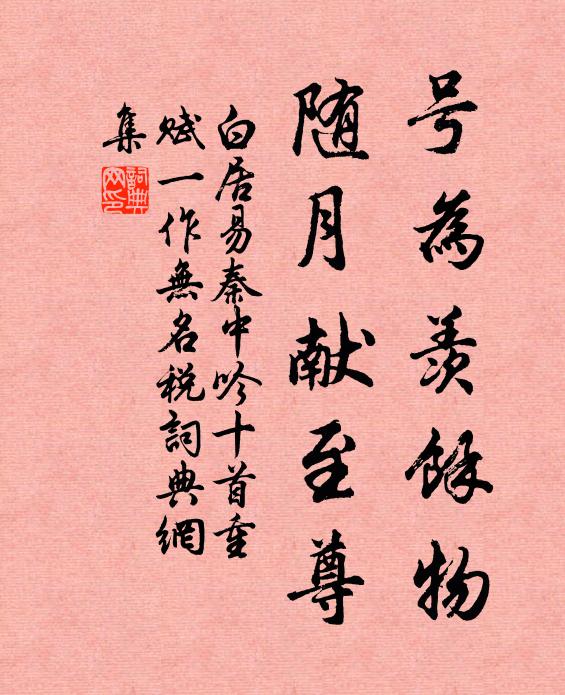 号為羡餘物
随月献至尊
白居易秦中吟十首重
赋一作無名税詞典網
集
詞典网印